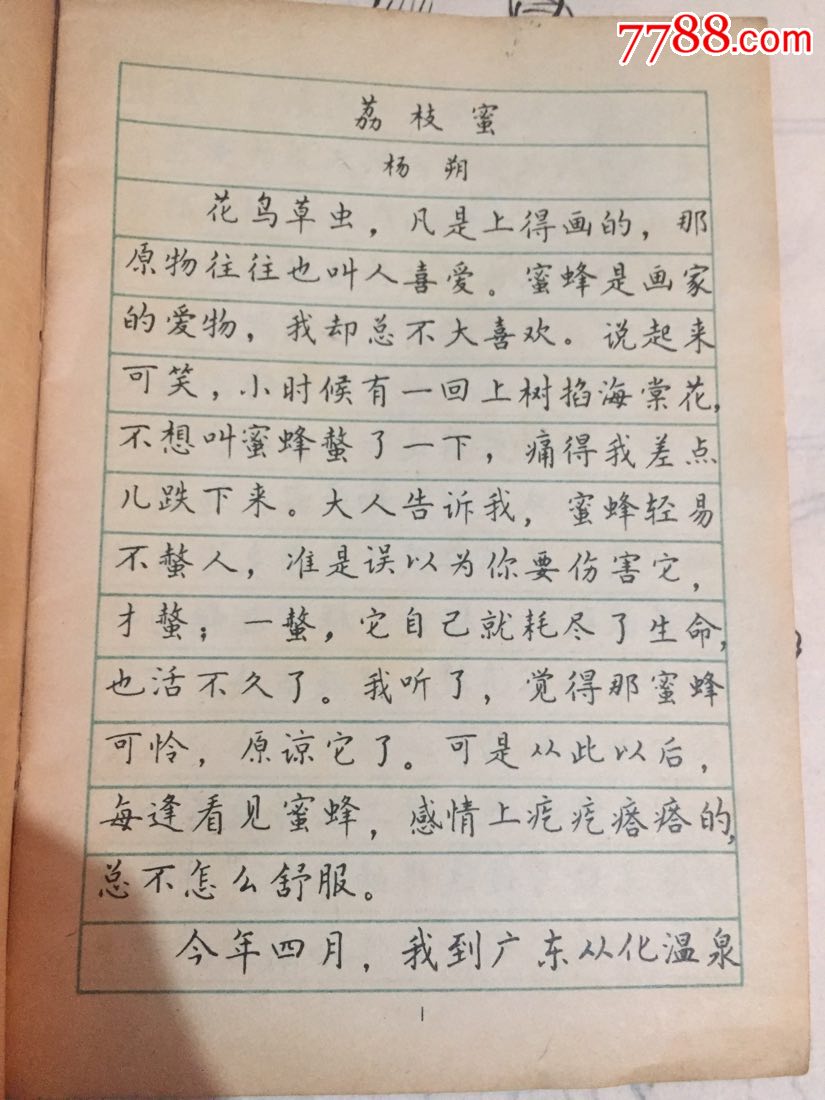 7788.com
荔枝蜜
杨朔
花鸟草虫，凡是上得画的，那
原物往往也叫人喜爱。蜜蜂是画家
的爱物，我却总不大喜欢。说起来
可笑，小时候有一回上树掐海棠花，
不想叫蜜蜂螫了一下，痛得我差点
儿跌下来。大人告诉我，蜜蜂轻易
不螫人，准是误以为你要伤害它，
才螫；一螫，它自己就耗尽了生命，
也活不久了。我听了，觉得那蜜蜂
可怜，原谅它了。可是从此以后，
每逢看见蜜蜂，感情上疙疙瘩瘩的，
总不怎么舒服。
今年四月，我到广东从化温泉
1